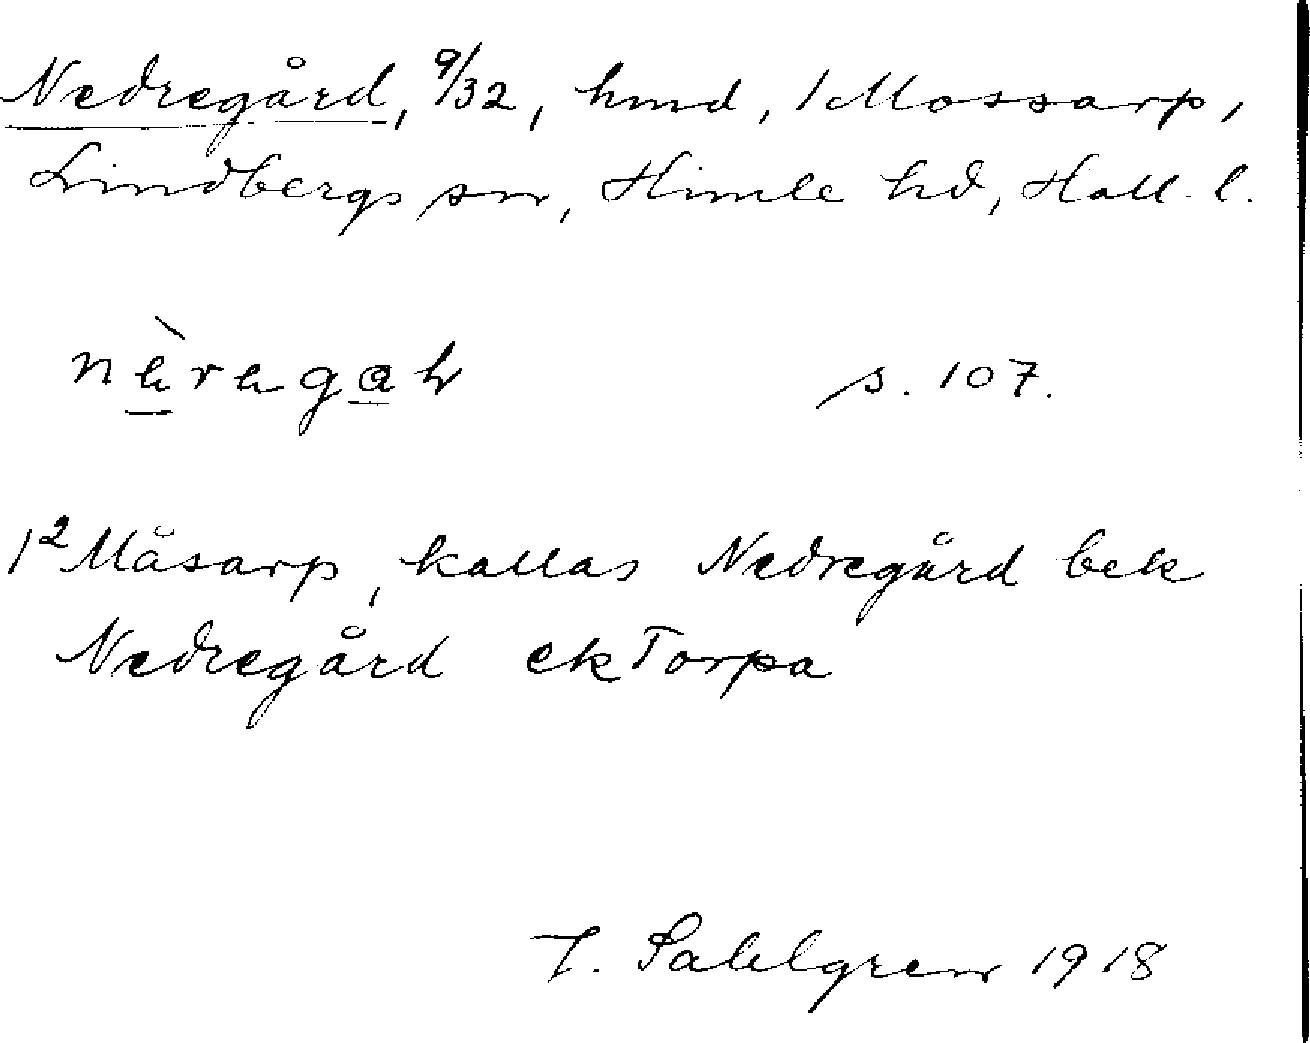 Nedregård, 9/32, hmd, 1 Mossarp,
Lindbergs sn, Himle hd, Hall. l.
s. 107.
1² Måsarp, kallas Nedregård bek
Nedregård ek Torpa
J. Sahlgren 1918